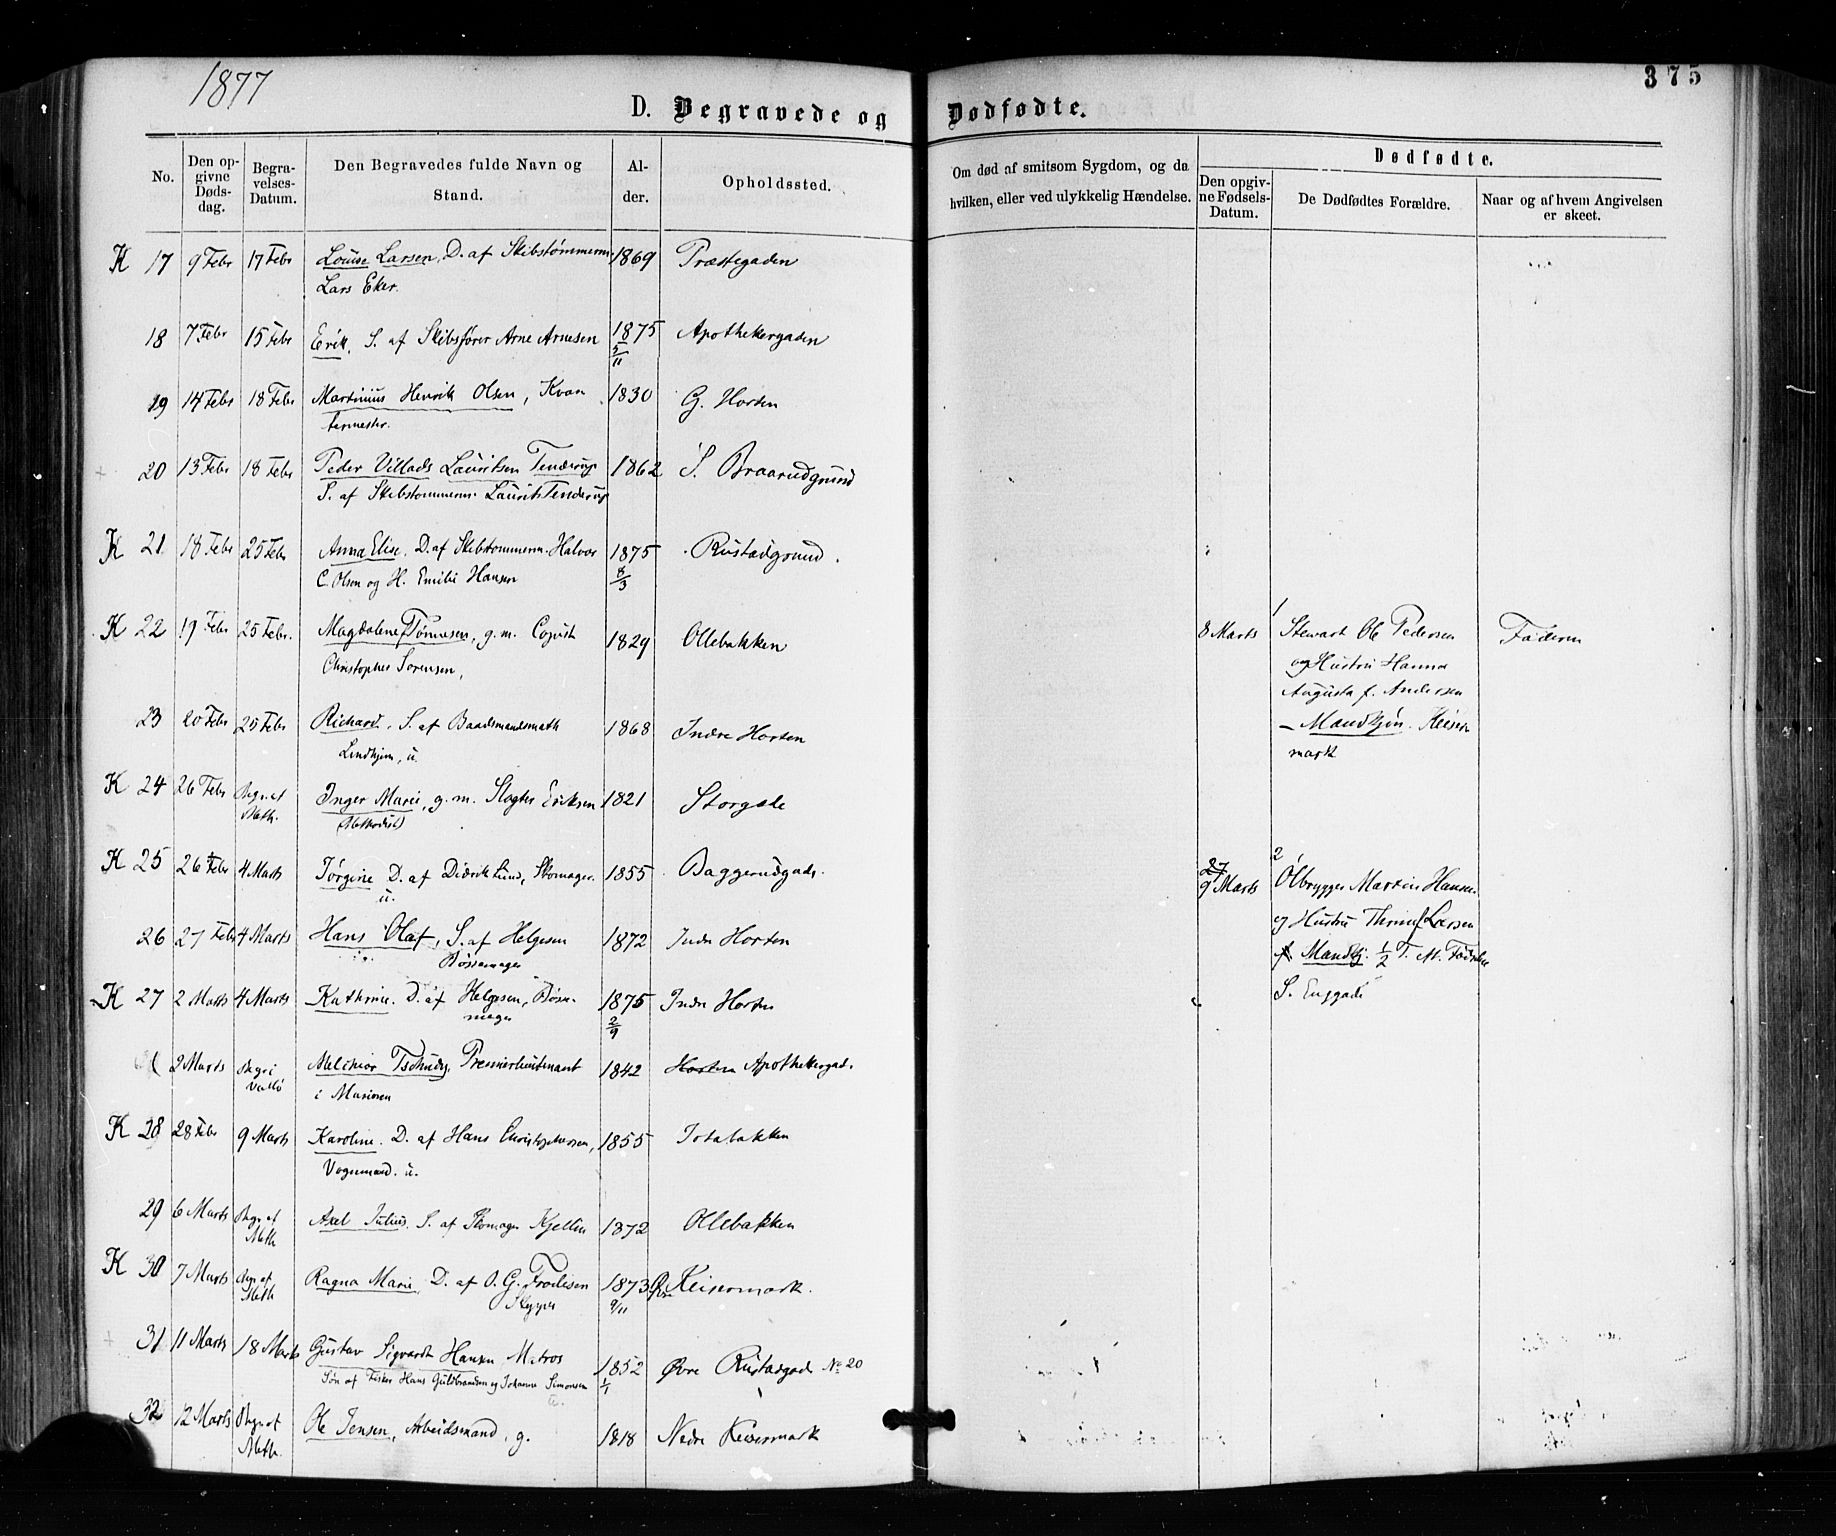 1877
375
D. Begravede og Dødfødte.
No.
Den opgivne Dødsdag.
Begravelses-Datum.
Den Begravedes fulde Navn og Stand.
Alder.
Opholdssted.
Om død af smitsom Sygdom, og da hvilken, eller ved ulykkelig Hændelse.
Dødfødte.
Den opgivne Fødsels-Datum.
De Dødfødtes Forældre.
Naar og af hvem Angivelsen er skeet.
K 17 9 Febr 17 Febr Louise Larsen, D. af Skibstømmerm. 1869 Præstegaden
Lars Eker.
18 7 Febr 15 Febr Erik, S. af Skibsfører Arne Arnesen 1875 5/11 Apothekergaden
19 14 Febr 18 Febr Martinius Henrik Olsen, Kvar 1830 G. Horten
termestr.
20 13 Febr 18 Febr Peder Villads Lauritsen Tenderup 1862 S. Braarudgrund
S. af Skibstommerm. Laurits Tenderup
K 21 18 Febr 25 Febr Anna Elise. D. af Skibstommerm. Halvor 1875 8/3 Rustadgrund.
C. Olsen og H. Emilie Hansen
K 22 19 Febr 25 Febr. Magdalene f. Tønnesen, g. m. Copist 1829 Ollebakken
Christopher Sørensen,
23 20 Febr 25 Febr Richard, S. af Baadsmandsmath 1868 Indre Horten
Lindhjem, u.
K 24 26 Febr Begr. af Meth. Inger Marie, g. m. Slagter Eriksen 1821 Storgade
(Methodist)
K 25 26 Febr 4 Marts Jørgine D. af Didrik Lund, Skomager. 1855 Baggerudgad.
u.
26 27 Febr 4 Marts Hans Olaf, S. af Helgesen 1872 Indr Horten
Bøssemager
K 27 2 Marts 4 Marts Kathrine. D. af Helgesen, Bøsse- 1875 2/9 Indr Horten
mager
2 Marts Begr i Vallø Melchior Tschudy, Premierlieutenant 1842 Horten Apothekergad.
i Marinen
K 28 28 Febr 9 Marts Karoline. D. af Hans Christophersen, 1855 Totabakken
Vognmand. u.
29 6 Marts Begr. af Meth Axel Julius, S. af Skomager Kjellin 1872 Ollebakken
K 30 7 Marts Begr. af Meth Ragna Marie, D. af O. G. Frodesen 1873 9/11 Øvre Keisermark.
Skypper
31 11 Marts 18 Marts Gustav Sigvardt Hansen Matros 1852 1/1 Øvre Rustadgad No 20
Søn af Fisker Hans Guldbrandsen og Johanne Simonsen
u.
32 12 Marts Begr. af Meth. Ole Jensen, Arbeidsmand, g. 1818 Nedre Keisermark
8 Marts 1 Stewart Ole Pedersen Faderen
og Hustru Hanna
Augusta f. Andersen
– Mandkjøn. Keiser
mark
27
9 Marts 2 Ølbrygger Martin Hansen
og Hustru Thrine f. Larsen
Mandkj. 1/2 T. M. Fødsele
S. Enggade